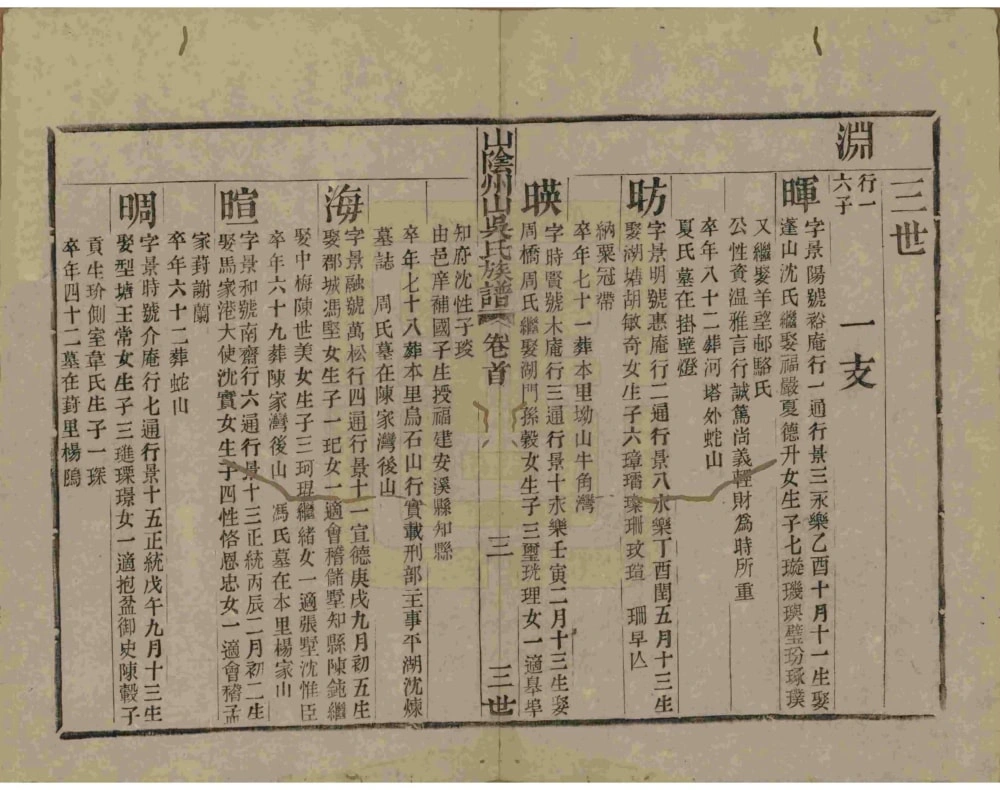 三世
一支
淵
行一
六子
暉
字景陽號裕庵行一通行景三永樂乙酉十月十一生娶
蓬山沈氏繼娶福嚴夏德升女生子七璇璣璵璧玢琢璞
又繼娶羊望邨駱氏
公性資溫雅言行誠篤尚義輕財為時所重
卒年八十二葬河塔外蛇山
夏氏墓在掛壁燈
昉
字景明號惠庵行二通行景八永樂丁酉閏五月十三生
娶湖塘胡敏奇女生子六璋璿瑧珊玟瑄 珊早亾
納粟冠帶
卒年七十一葬本里坳山牛角灣
暎
字時賢號木庵行三通行景十永樂壬寅二月十三生娶
周橋周氏繼娶湖門孫穀女生子三璽珖理女一適皋埠
知府沈性子琰
由邑庠補國子生授福建安溪縣知縣
卒年七十八葬本里烏石山行實載刑部主事平湖沈煉
墓誌 周氏墓在陳家灣後山
山陰州山吳氏族譜
卷首
三
三世
海
字景融號萬松行四通行景十一宣德庚戌九月初五生
娶郡城馮堅女生子一玘女一適會稽儲墅知縣陳鈍繼
娶中梅陳世美女生子三珂琨繼緒女一適張墅沈惟臣
卒年六十九葬陳家灣後山 馮氏墓在本里楊家山
暄
字景和號南齋行六通行景十三正統丙辰二月初二生
娶馬家港大使沈實女生子四性恪恩忠女一適會稽孟
家葑謝蘭
卒年六十二葬蛇山
晭
字景時號介庵行七通行景十五正統戊午九月十三生
娶型塘王常女生子三璡瑮璟女一適抱盆御史陳穀子
貢生玠側室韋氏生子一琛
卒年四十二墓在葑里楊隖